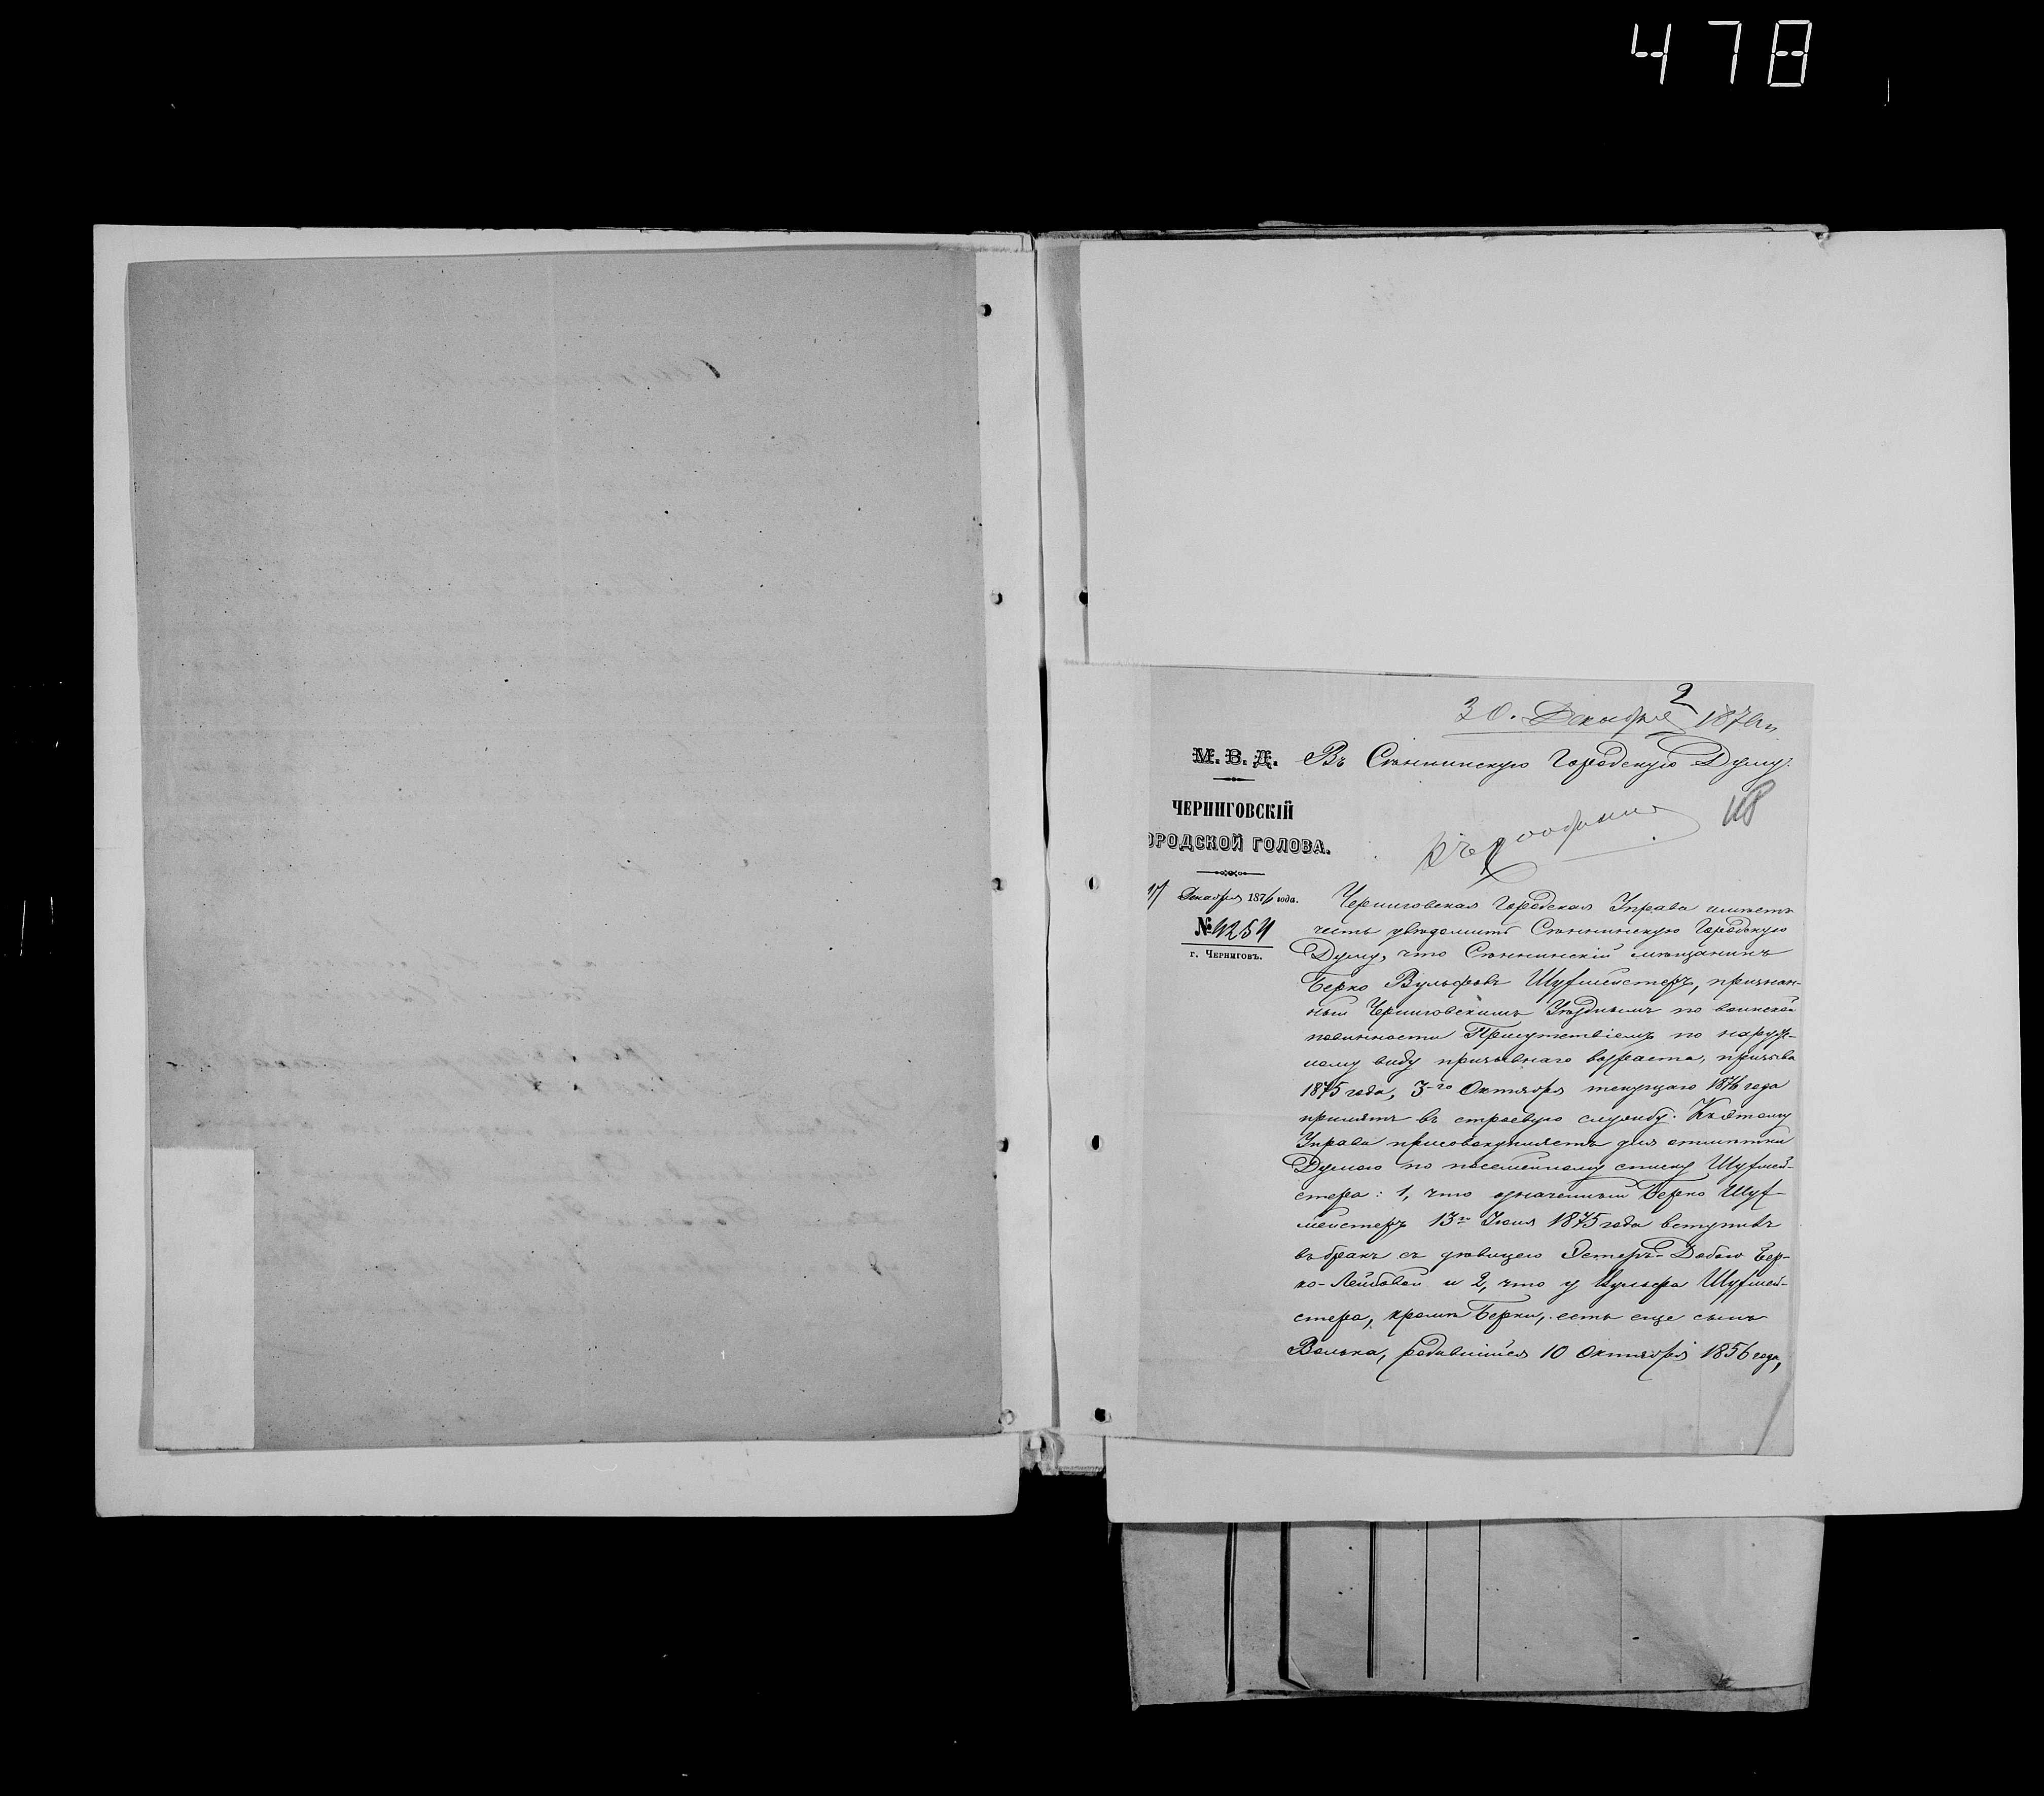 478
2
30. Декабря 1876 г.
М. В. Д.
Въ Сѣннинскую Городскую Думу.
ЧЕРНИГОВСКІЙ
ОРОДСКОЙ ГОЛОВА.
Декабря 1876 года.
№ 4254
г. Черниговъ.
Черниговская Городская Управа имѣетъ
честь увѣдомить Сѣннинскую Городскую
Думу, что Сѣннинскій мѣщанинъ
Берко Вульфовъ Шуфмейстеръ, признан-
ный Черниговскимъ Уѣзднымъ по воинской
повинности Присутствіемъ по наруж-
ному виду призывнаго возраста, призыва
1875 года, 3-го Октября текущаго 1876 года
принятъ въ строевую службу. Къ этому
Управа присовокупляетъ для отмѣтки
Думою по посемейному списку Шуфмей-
стера: 1, что означенный Берко Шуф-
мейстеръ 13го Іюня 1875 года вступилъ
въ бракъ съ дѣвицею Эстеръ-Добою Бер-
ко-Лейбовой и 2, что у Вульфа Шуфмей-
стера, кромѣ Берки, есть еще сынъ
Волька, родившійся 10 Октября 1856 года,